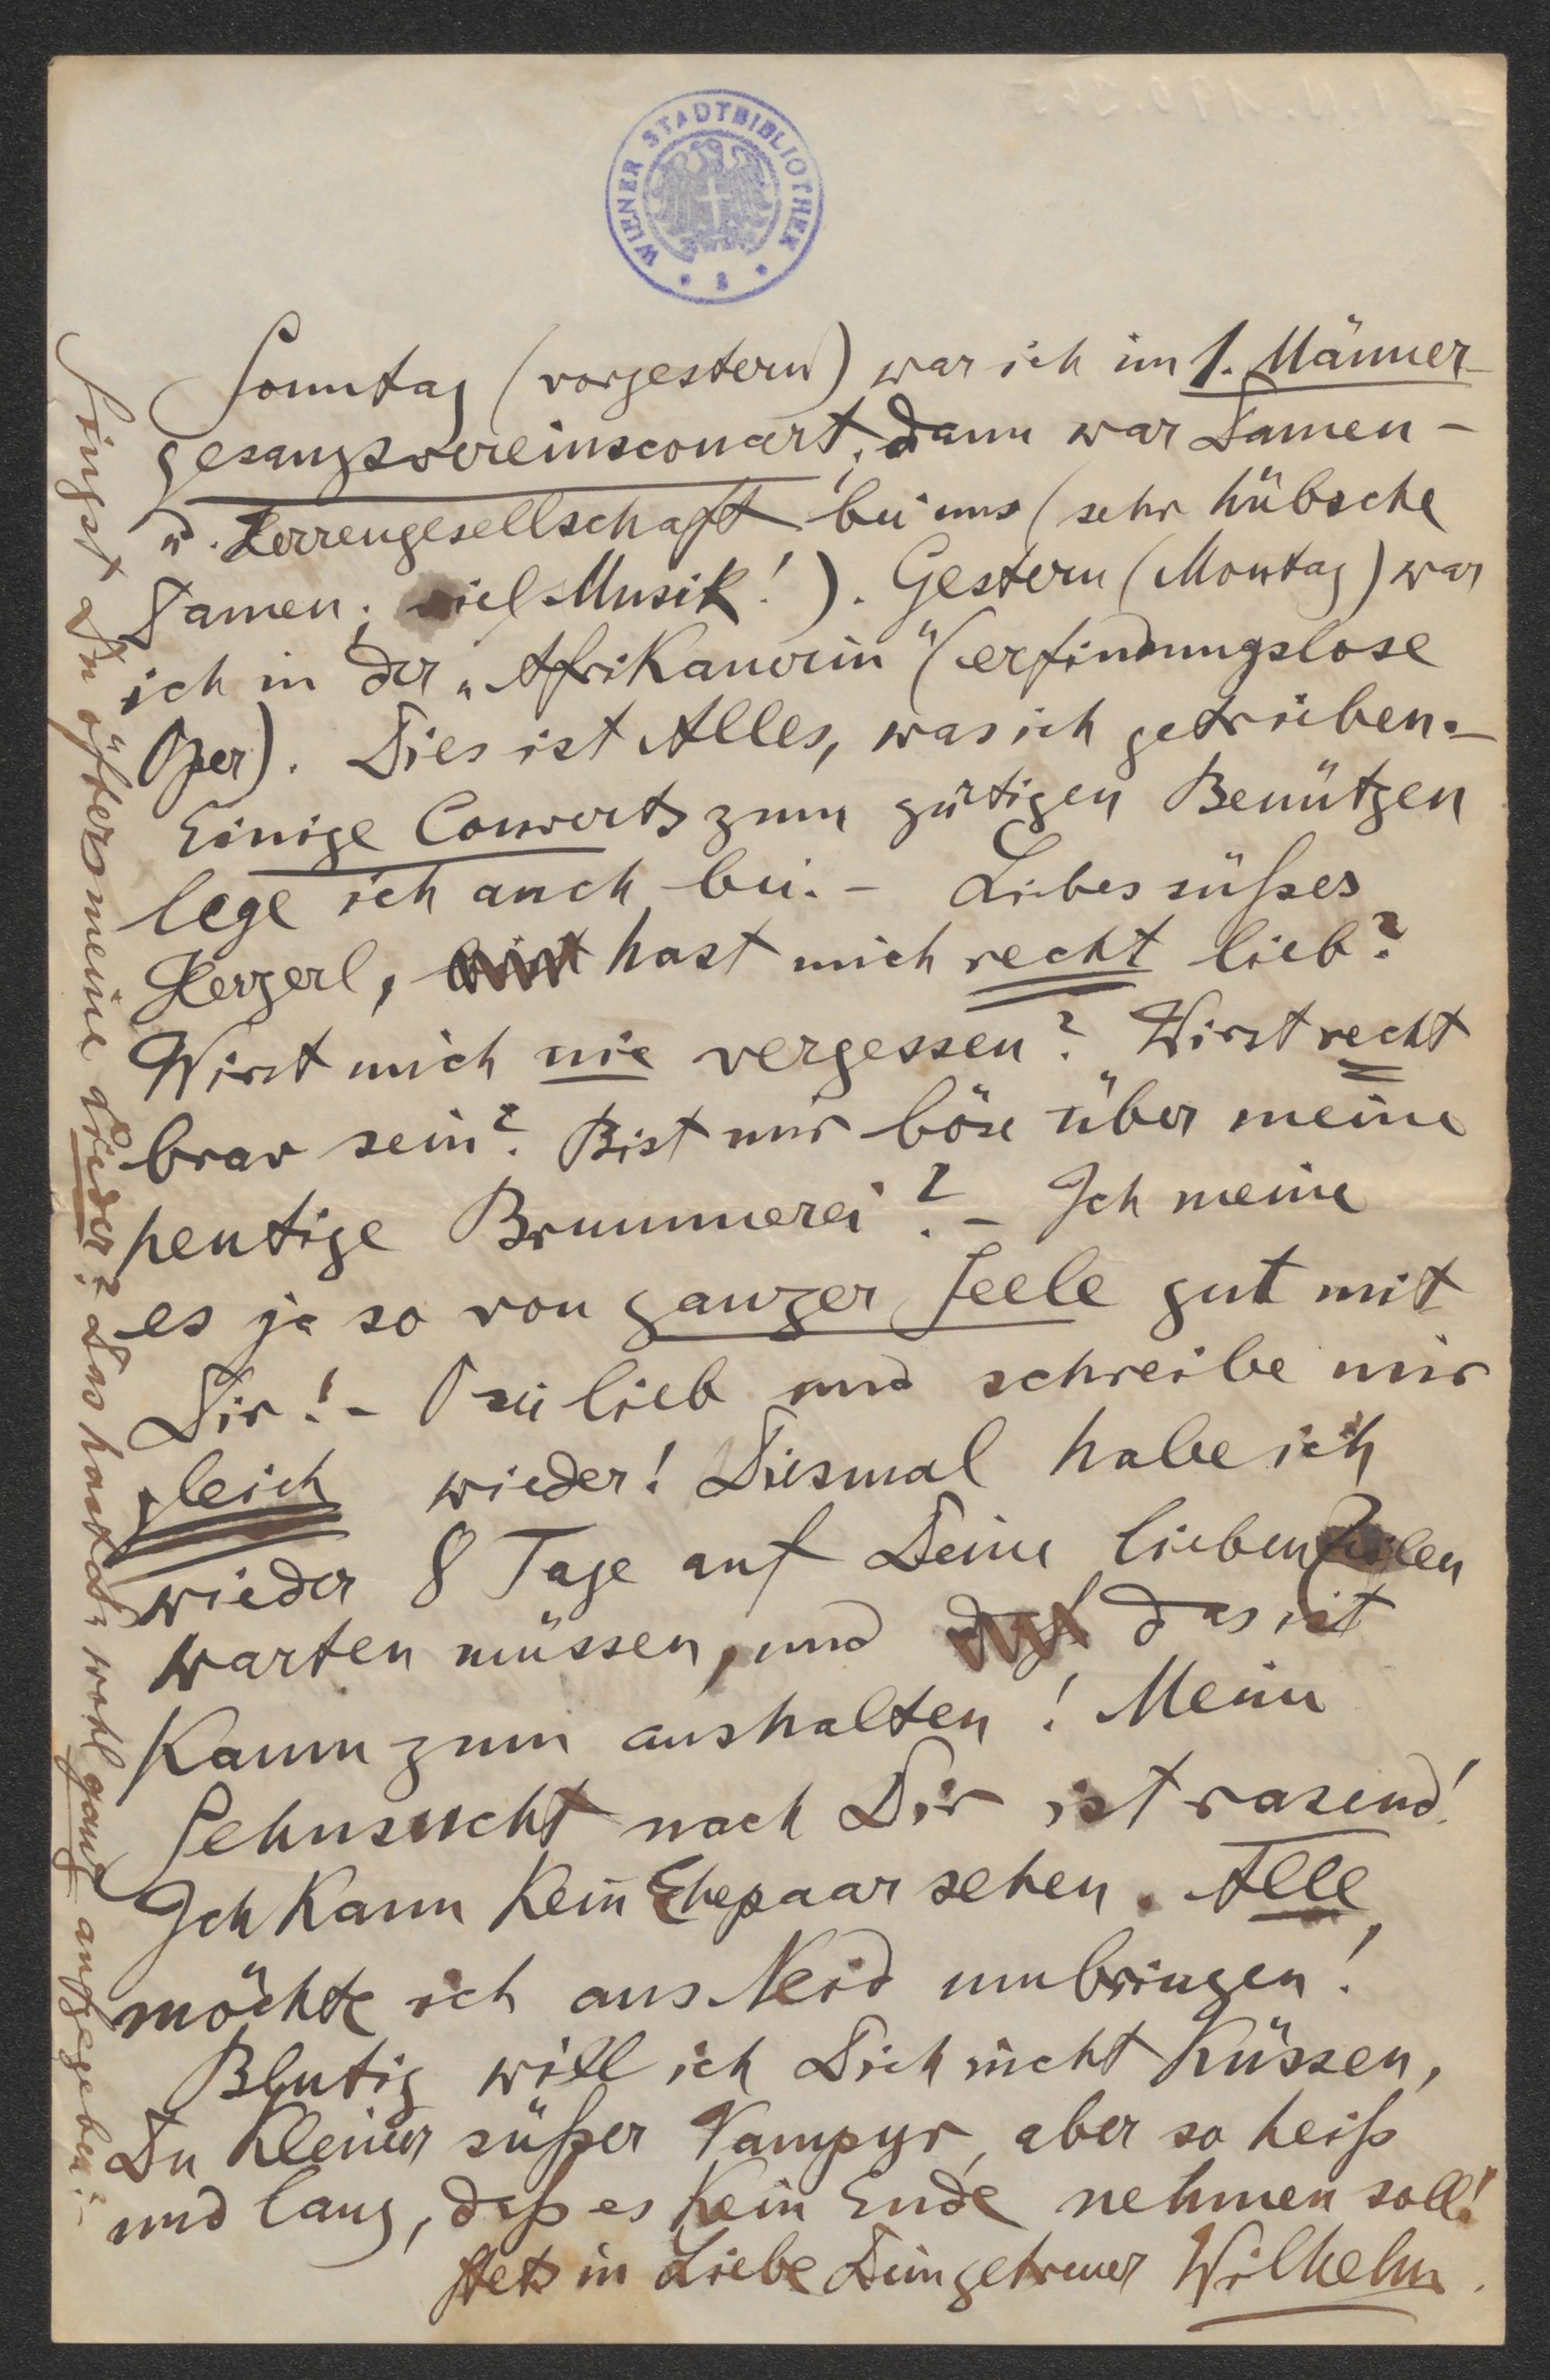 WIENER STADTBIBLIOTHEK
Sonntag (vorgestern) war ich im 1. Männer-
gesangsvereinsconcert, dann war Damen-
u. Herrengesellschaft bei uns (sehr hübsche
Damen; viel Musik!). Gestern (Montag) war
ich in der „Afrikanerin“ (erfindungslose
Oper). Dies ist Alles, was ich getrieben.–
Einige Couverts zum gütigen Benützen
lege ich auch bei. – Liebes süßes
Herzerl, hast mich recht lieb?
Wirst mich nie vergessen? Wirst recht
brav sein? Bist mir böse über meine
heutige Brummerei? – Ich meine
es ja so von ganzer Seele gut mit
Dir! – O sei lieb und schreibe mir
gleich wieder! Diesmal habe ich
wieder 8 Tage auf Deine lieben Zeilen
warten müssen, und das ist
kaum zum aushalten! Meine
Sehnsucht nach Dir ist rasend!
Ich kann kein Ehepaar sehen. Alle
möchte ich aus Neid umbringen!
Blutig will ich Dich nicht küssen,
Du kleiner süßer Vampyr, aber so heiß
und lang, daß es kein Ende nehmen soll!
Stets in Liebe Dein getreuer Wilhelm.
Singst Du öfters meine Lieder? Das hast Du wohl ganz aufgegeben? –